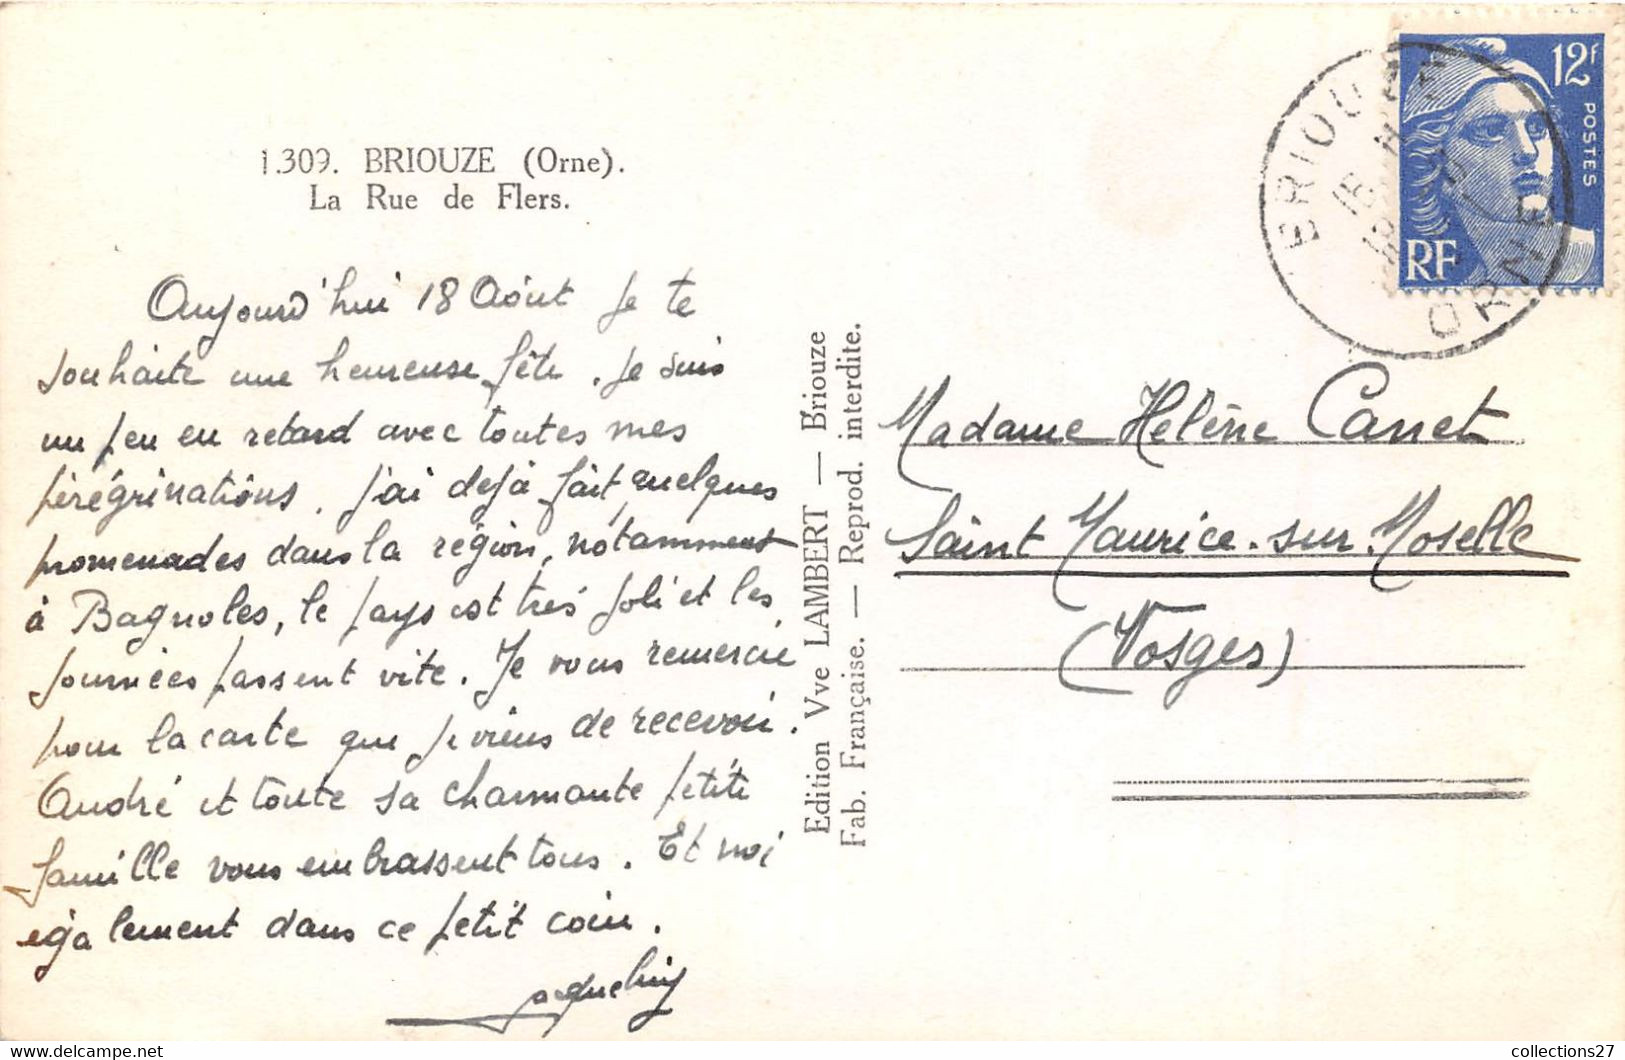 1.309. BRIOUZE (Orne).
La Rue de Flers.
Aujourd'hui 18 Août je te
souhaite une heureuse fête. Je suis
un peu en retard avec toutes mes
pérégrinations. J'ai dejà fait quelques
promenades dans la région, notamment
à Bagnoles, le pays est très joli et les
journées passent vite. Je vous remercie
pour la carte que je viens de recevoir.
André et toute sa charmante petite
famille vous embrassent tous. Et moi
également dans ce petit coin.
Jacqueline
Edition Vve LAMBERT — Briouze
Fab. Française. — Reprod. interdite.
BRIOUZE
18
ORNE
12f
POSTES
RF
Madame Hélène Canet
Saint Maurice. sur. Moselle
(Vosges)
collections27